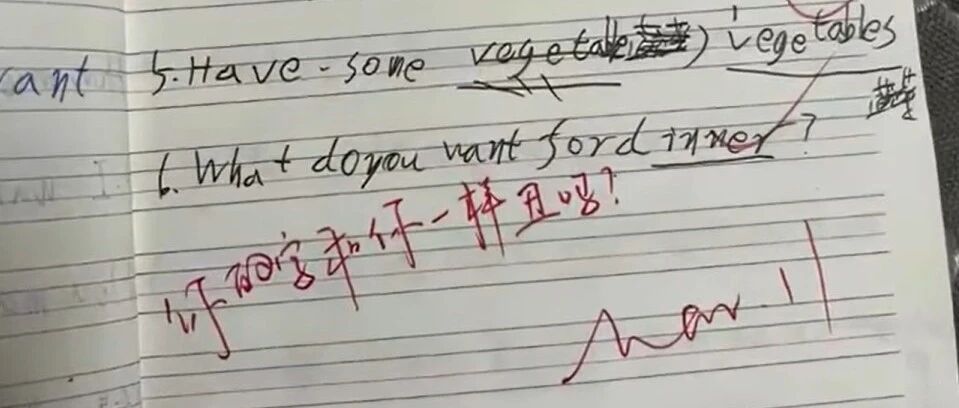 ant
5. Have some vegetable vegetables
6. What do you want for dinner?
你的字和你一样丑吗?
Nov. 11